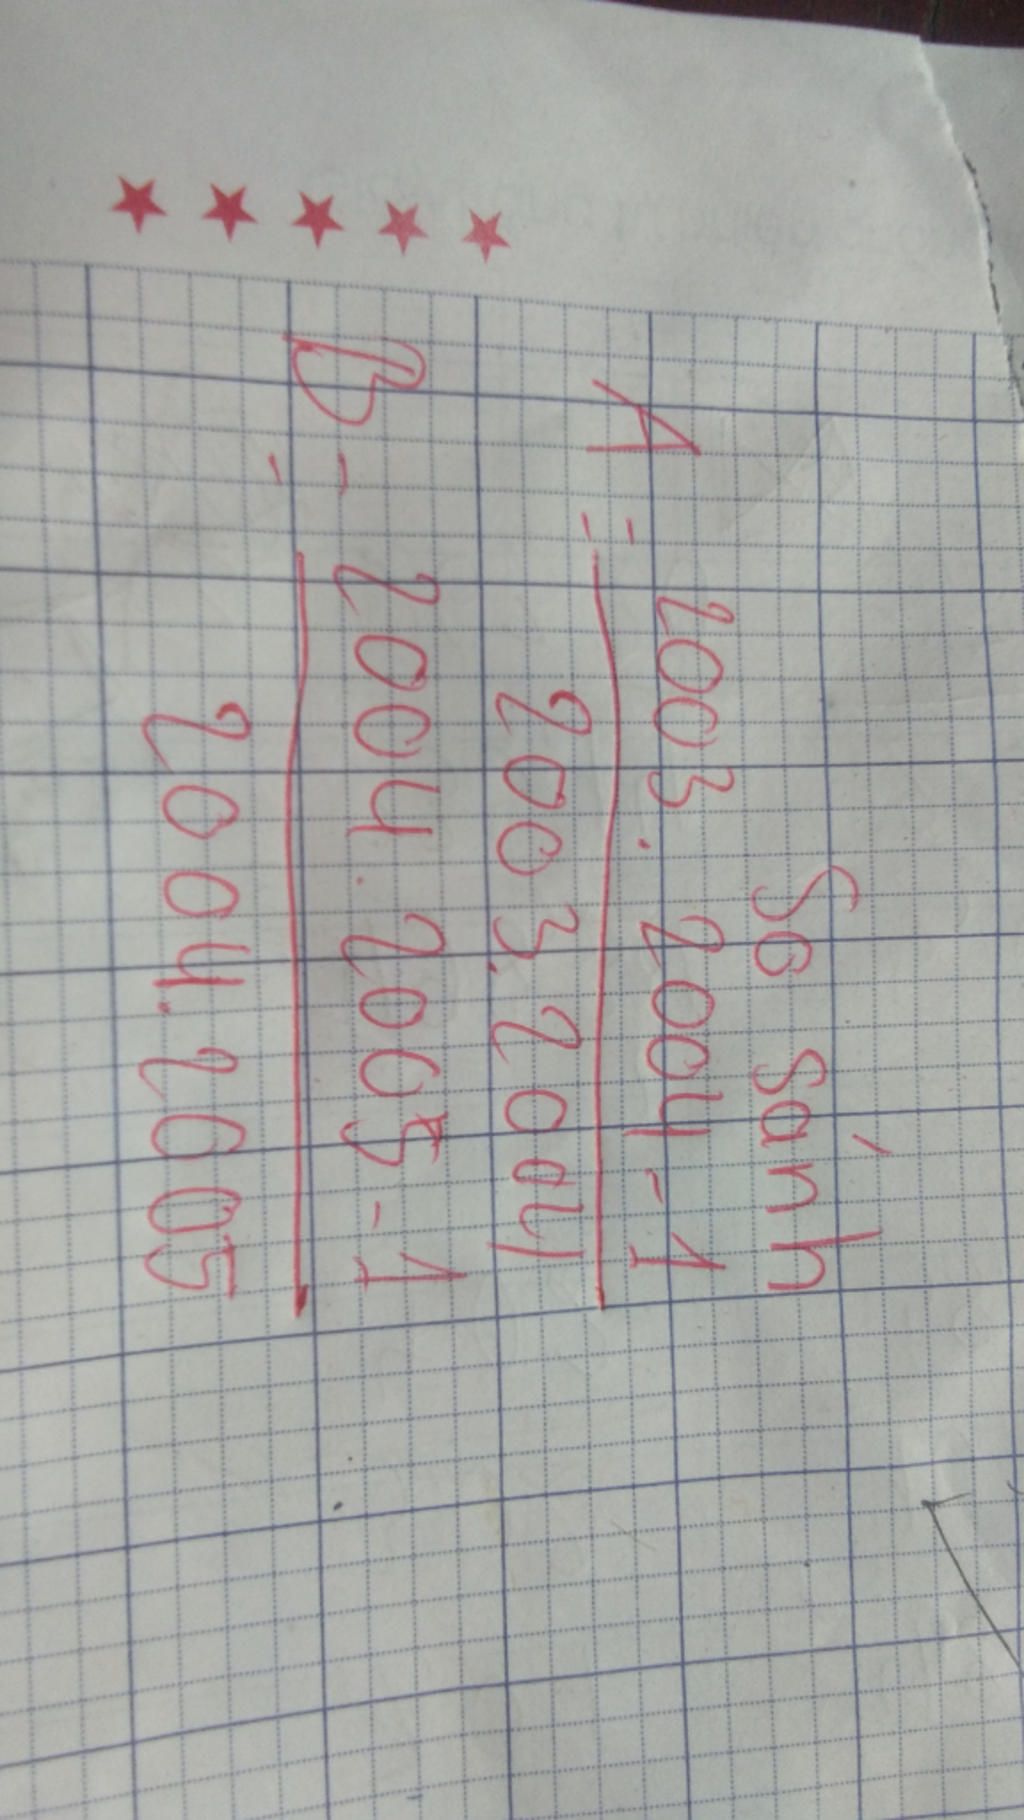 So sánh
2003. 2004-1
A =
2003. 2004
2004. 2005-1
B =
2004. 2005